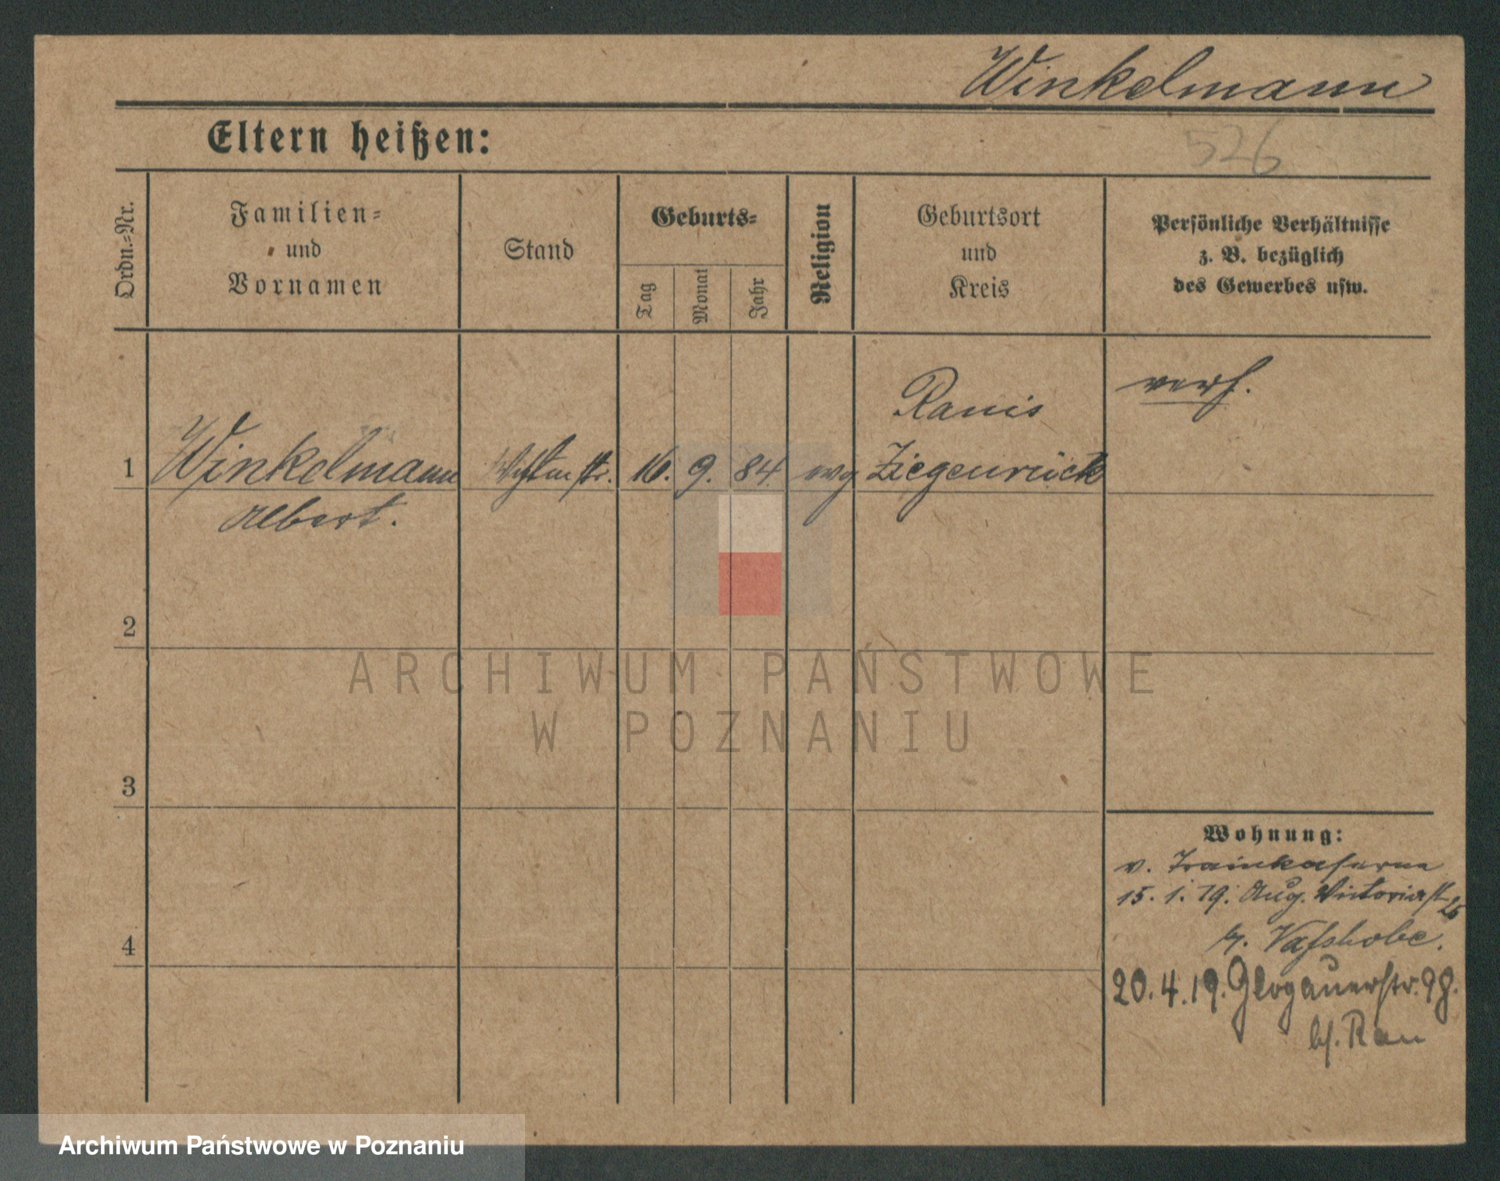 Winkelmann
Eltern heißen:
526
Ordn.=Nr.
Familien=
und
Vornamen
Stand
Geburts=
Tag
Monat
Jahr
Religion
Geburtsort
und
Kreis
Persönliche Verhältnisse
z. B. bezüglich
des Gewerbes usw.
verh.
Ranis
1 Winkelmann 16. 9. 84 evg Ziegenrück
Albert.
2
ARCHIWUM PAŃSTWOWE
W POZNANIU
3
Wohnung:
v. Trainkaserne
15. 1. 19. Aug. Victoriastr
4
20. 4. 19. Glogauerstr. 98.
bs. Rau
Archiwum Państwowe w Poznaniu